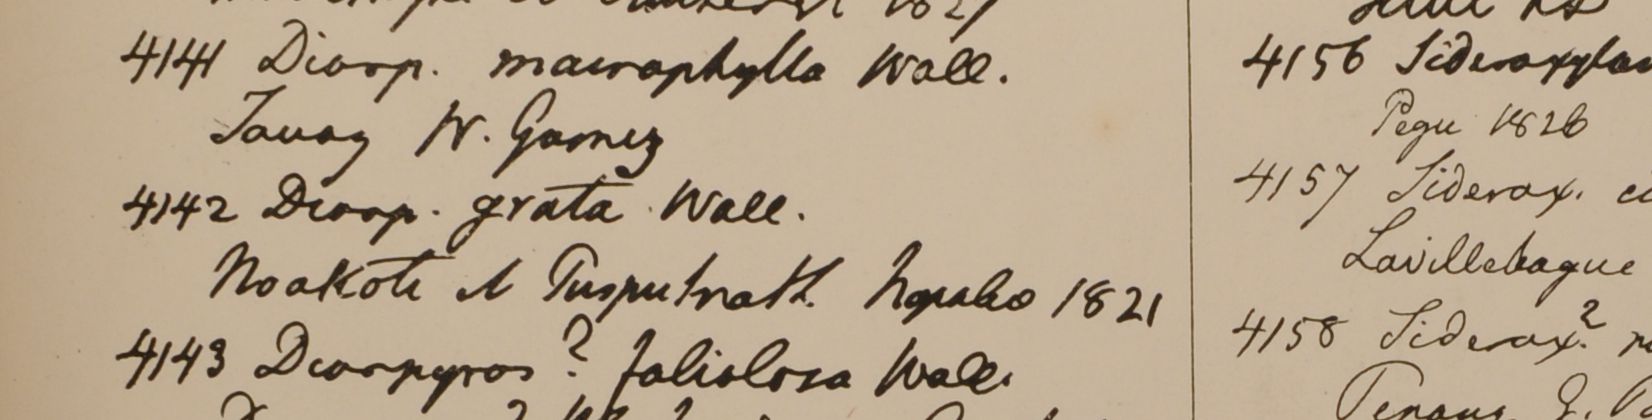 1827
4141 Diosp. macrophylla Wall.
Tavoy W. Gomez
4142 Diosp. grata Wall.
Noakote et Nepalia 1821
4143 Diospyros? foliolosa Wall.
4156 Sideroxylon
Pegu 1826
4157 Siderox.
Lavillebague
4158 Siderox?
Penang